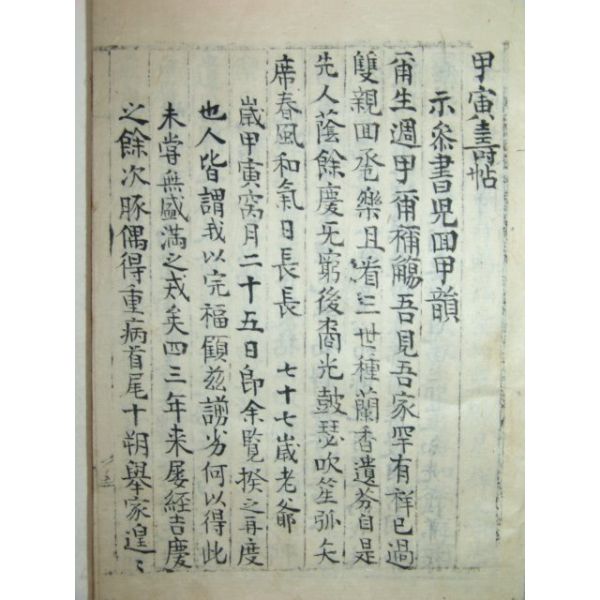 甲寅壽帖
示叅書兒回甲韻
爾生週甲爾稱觴吾見吾家罕有祥已過
雙親回卺樂且看三世種蘭香遺芬自是
先人蔭餘慶旡窮後裔光鼓瑟吹笙弧矢
席春風和氣日長長 七十七歲老爺
歲甲寅窩月二十五日卽余覽揆之再度
也人皆謂我以完福顧茲謭劣何以得此
未嘗無盛滿之戒矣四三年来屢經吉慶
之餘次豚偶得重病首尾十朔擧家遑〻